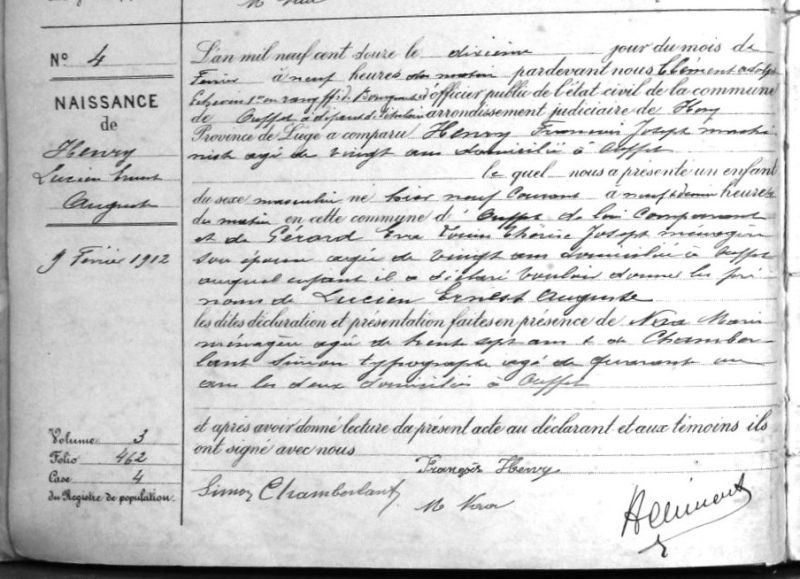 N° 4
NAISSANCE
de
Henry
Lucien Ernest
Auguste
9 Février 1912
L'an mil neuf cent douze le dixième jour du mois de
Février à neuf heures du matin pardevant nous Clément Adolphe
officier public de l'état civil de la commune
de Ouffet arrondissement judiciaire de Huy
Province de Liège a comparu Henry François Joseph machi
niste agé de vingt ans domicilié à Ouffet
le quel nous a présenté un enfant
du sexe masculin né hier neuf courant à neuf heures
du matin en cette commune d'Ouffet de lui comparant
et de Gérard Eva Thérèse Joseph ménagère
son épouse agée de vingt ans domiciliée à Ouffet
auquel enfant il a déclaré vouloir donner les pré
noms de Lucien Ernest Auguste
les dites déclaration et présentation faites en présence de Marie
ménagère agée de trente sept ans & de Chamber
lant Simon typographe agé de quarante un
ans les deux domiciliés à Ouffet
et après avoir donné lecture du présent acte au déclarant et aux témoins ils
ont signé avec nous
François Henry
Simon Chamberlant
AClément
Volume 3
Folio 462
Case 4
du Registre de population.